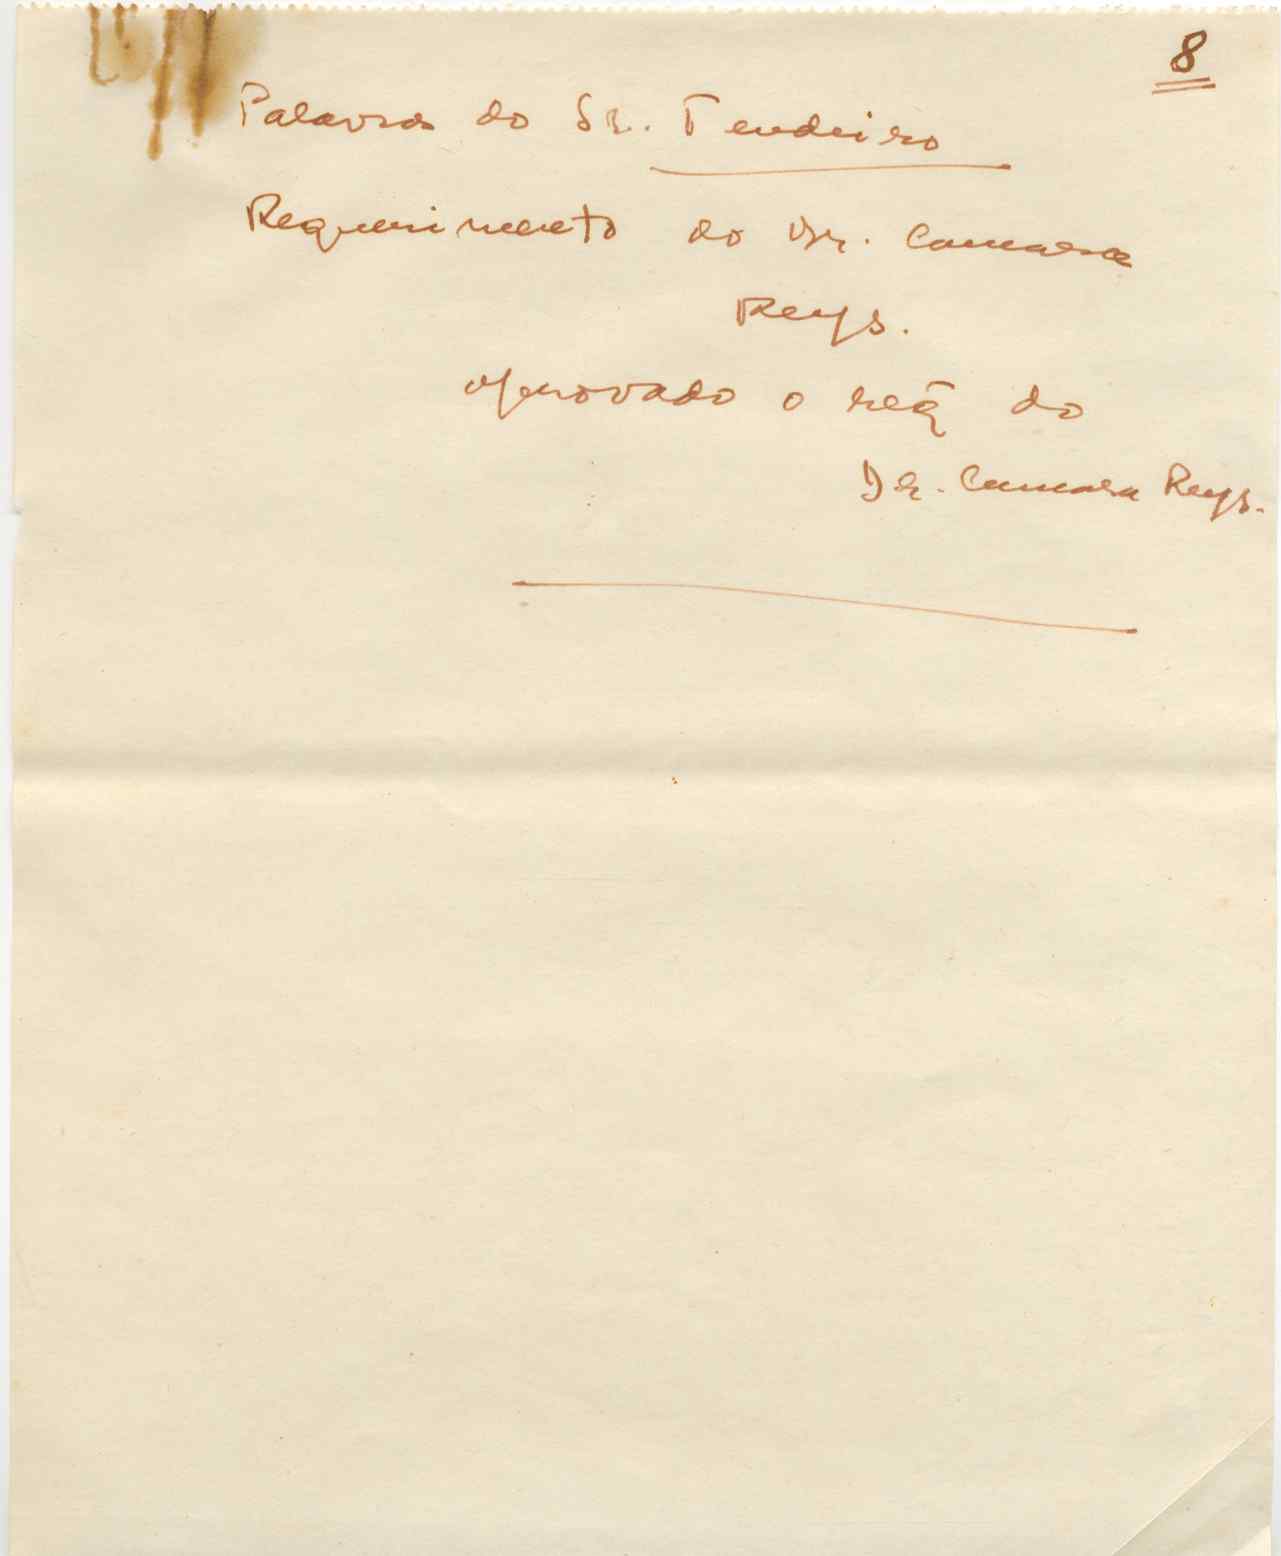 8
Palavras do Sr. Tendeiro
Requerimento do Dr. Camara
Reys.
aprovado o req do
Dr. Camara Reys.